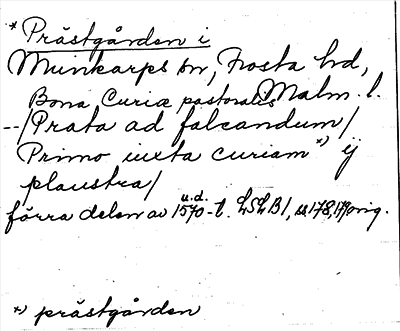 * Prästgården i
Munkarps sn, Frosta hd,
Malm. l.
Bona Curiæ pastoralis
--/Prata ad falcandum/
Primo iuxta curiam *) ij
plaustra/
förra delen av u.d. 1570-t. LSLB1, ss 178, 179 orig.
*) prästgården